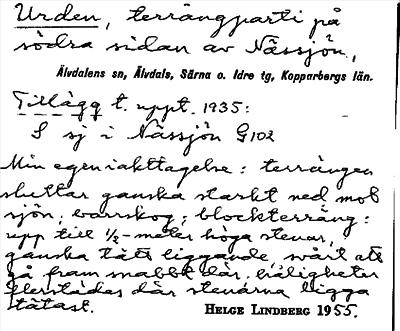 Urden, terrängparti på
södra sidan av Nässjön,
Älvdalens sn, Älvdals, Särna o. Idre tg, Kopparbergs län.
Tillägg t. uppt. 1935:
S sj i Nässjön G102
Min egen iakttagelse: terrängen
sluttar ganska starkt ned mot
sjön; barrskog; blockterräng:
upp till ½-meter höga stenar,
ganska tätt liggande, svårt att
gå fram snabbt där. håligheter
flerstädes där stenarna ligga
tätast.
HELGE LINDBERG 1955.